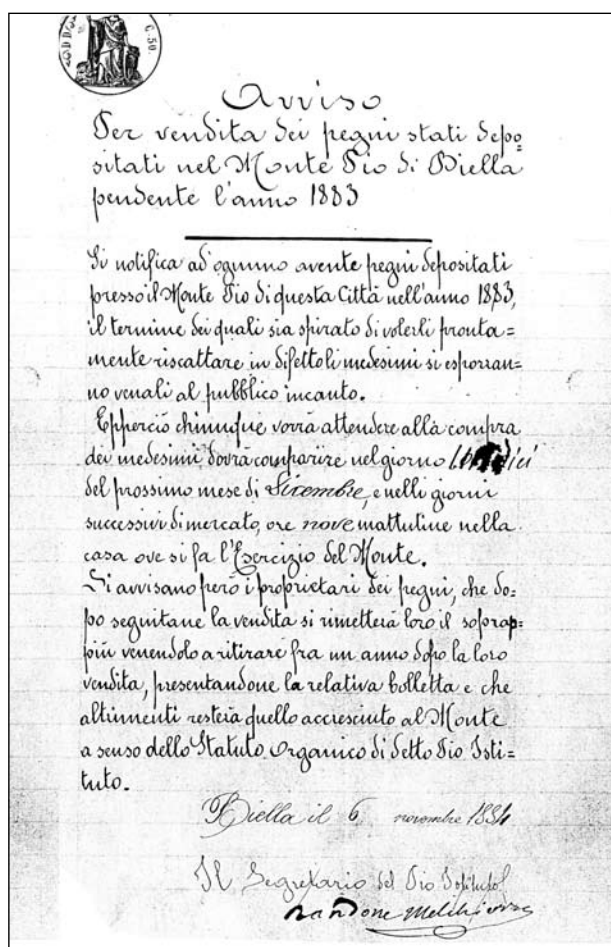 C. 50.
Avviso
Per vendita dei pegni stati depo=
sitati nel Monte Pio di Biella
pendente l'anno 1883
Si notifica ad ognuno avente pegni depositati
presso il Monte Pio di questa Città nell'anno 1883,
il termine dei quali sia spirato di volerli pronta=
mente riscattare in difetto li medesimi si esporran=
no venali al pubblico incanto.
Epperciò chiunque vorrà attendere alla compra
dei medesimi dovrà comparire nel giorno
del prossimo mese di Dicembre, e nelli giorni
successivi di mercato, ore nove mattutine nella
casa ove si fa l'Esercizio del Monte.
Si avvisano però i proprietari dei pegni, che do=
po seguitane la vendita si rimetterà loro il soprap=
più venendolo a ritirare fra un anno dopo la loro
vendita, presentandone la relativa bolletta e che
altrimenti resterà quello accresciuto al Monte
a senso dello Statuto Organico di detto Pio Isti=
tuto.
Biella il 6 novembre 1884
Il Segretario del Pio Istituto